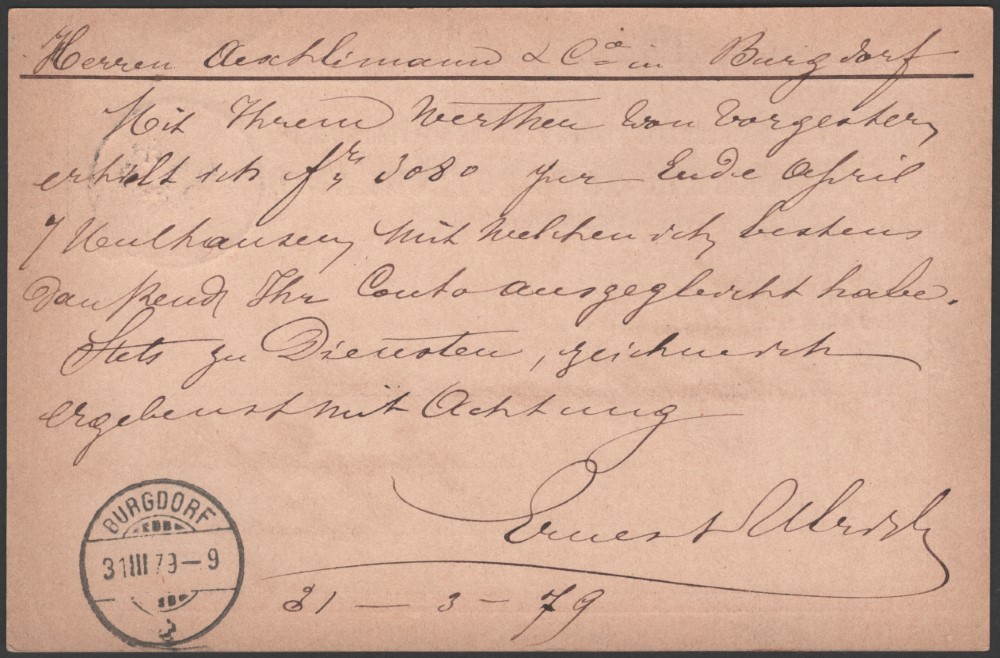 Herren Aeschlimann & Cie in Burgdorf
Mit Ihrem Werthen von vorgestern
erhielt ich frs 3080 per Ende April
/ Mulhausen, mit welchen ich bestens
dankend Ihr Conto ausgegleicht habe.
Stets zu Diensten, zeichne ich
ergebenst mit Achtung
Ernest Ulrich
31 — 3 — 79
BURGDORF
31 III 79 — 9